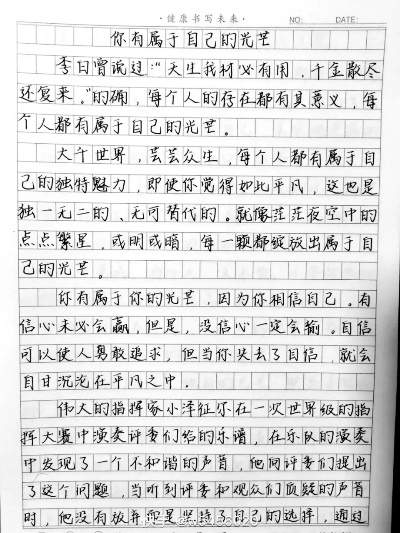 ·健康书写未来·
NO: DATE:
你有属于自己的光芒
李白曾说过:“天生我材必有用,千金散尽
还复来。”的确,每个人的存在都有其意义,每
个人都有属于自己的光芒。
大千世界,芸芸众生,每个人都有属于自
己的独特魅力,即使你觉得如此平凡,这也是
独一无二的、无可替代的。就像茫茫夜空中的
点点繁星,或明或暗,每一颗都绽放出属于自
己的光芒。
你有属于你的光芒,因为你相信自己。有
信心未必会赢,但是,没信心一定会输。自信
可以使人勇敢追求,但当你失去了自信,就会
自甘沉沦在平凡之中。
伟大的指挥家小泽征尔在一次世界级的指
挥大赛中演奏评委们给的乐谱,在乐队的演奏
中发现了一个不和谐的声音,他向评委们提出
了这个问题,当听到评委和观众们质疑的声音
时,他没有放弃而是坚持了自己的选择,通过